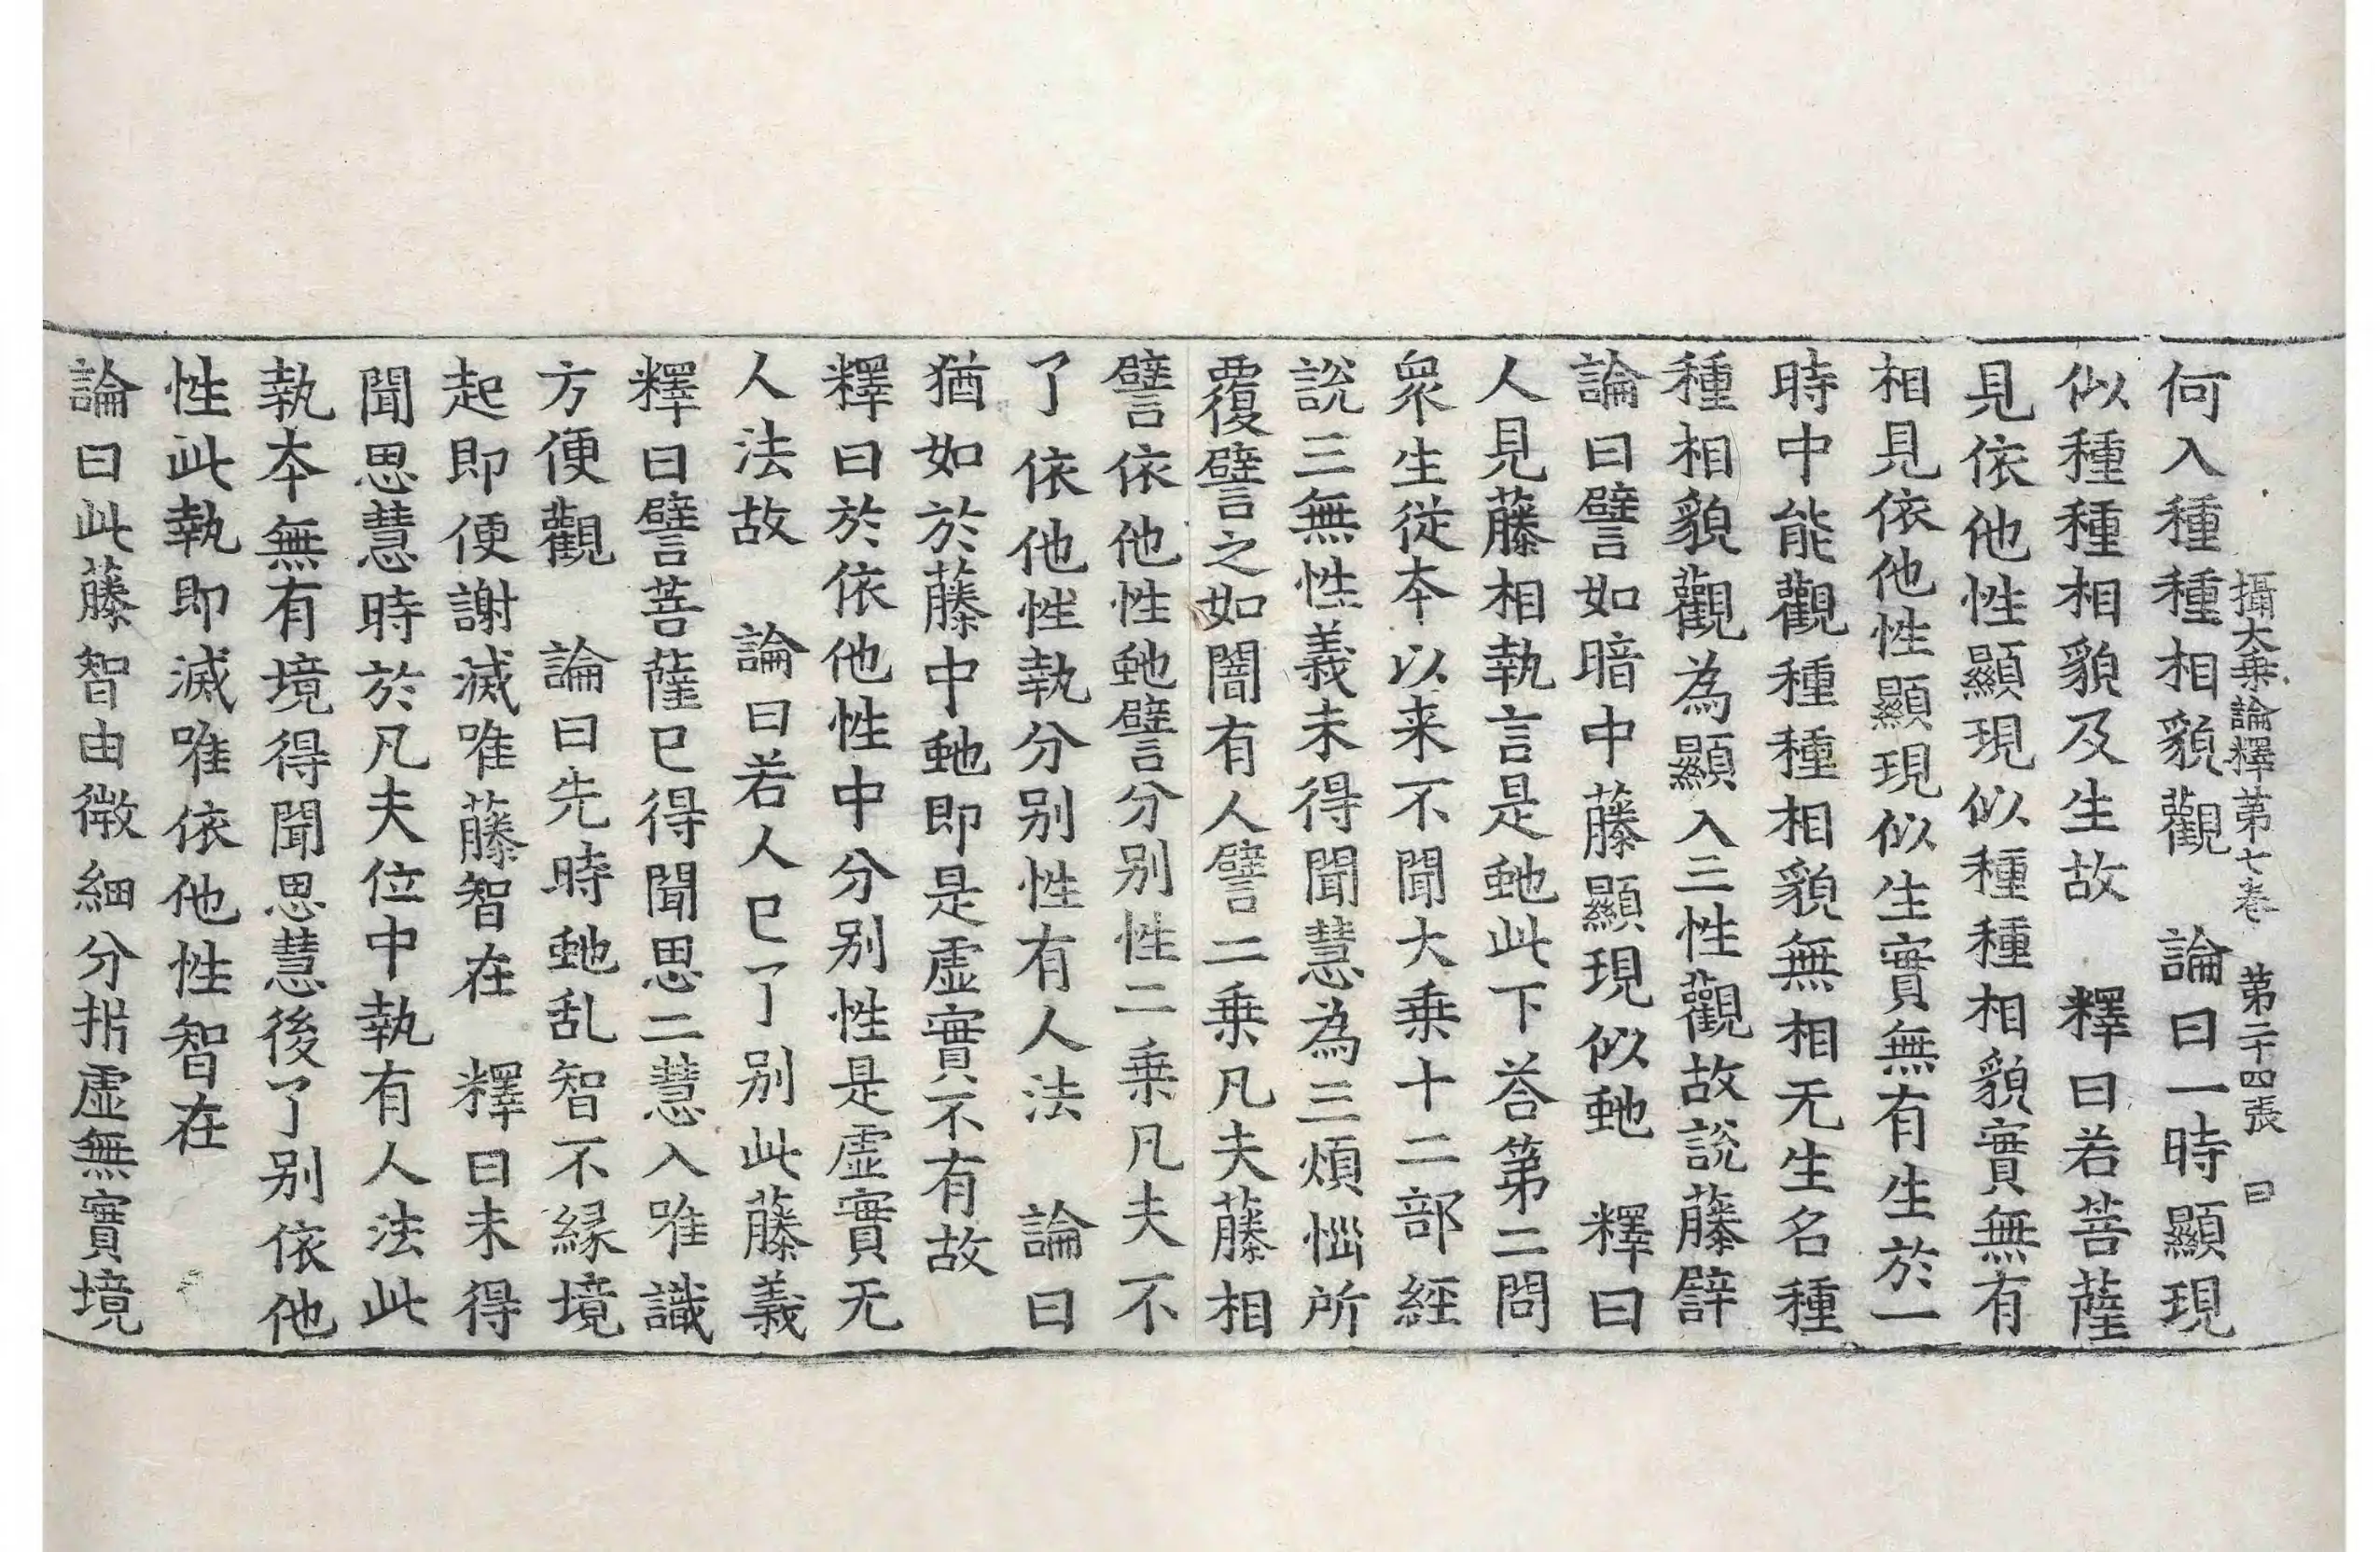 攝大乗論釋第七卷　第二十四張　曰
何入種種相貌觀　論曰一時顯現
似種種相貌及生故　釋曰若菩薩
見依他性顯現似種種相貌實無有
相見依他性顯現似生實無有生於一
時中能觀種種相貌無相无生名種
種相貌觀為顯入三性觀故說藤譬
論曰譬如暗中藤顯現似虵　釋曰
人見藤相執言是虵此下荅第二問
衆生從夲以来不聞大乗十二部經
說三無性義未得聞慧為三煩惱所
覆譬之如闇有人譬二乗凡夫藤相
譬依他性虵譬分别性二乗凡夫不
了依他性執分别性有人法　論曰
猶如於藤中虵即是虛實不有故
釋曰於依他性中分别性是虛實无
人法故　論曰若人已了别此藤義
釋曰譬菩薩已得聞思二慧入唯識
方便觀　論曰先時虵乱智不縁境
起即便謝滅唯藤智在　釋曰未得
聞思慧時於凡夫位中執有人法此
執夲無有境得聞思慧後了别依他
性此執即滅唯依他性智在
論曰此藤智由微細分㭊虛無實境